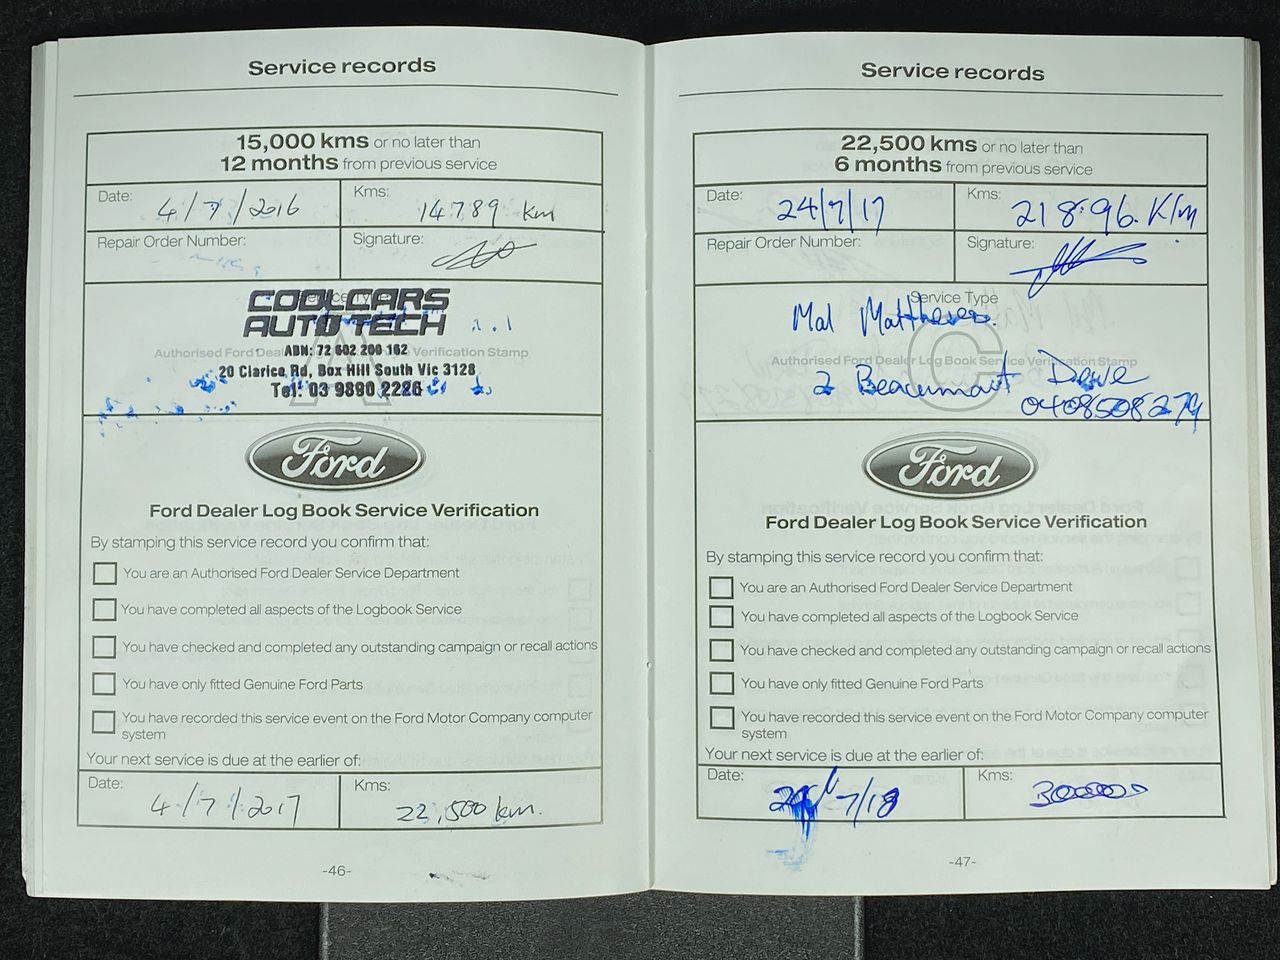 Service records
15,000 kms or no later than
12 months from previous service
Date:
4/7/2016
Kms:
14789 km
Repair Order Number:
Signature:
Service Type
COOLCARS
AUTO TECH
ABN: 72 602 200 162
Authorised Ford Dealer Verification Stamp
20 Clarice Rd, Box Hill South Vic 3128
Tel: 03 9890 2226
Ford
Ford Dealer Log Book Service Verification
By stamping this service record you confirm that:
You are an Authorised Ford Dealer Service Department
You have completed all aspects of the Logbook Service
You have checked and completed any outstanding campaign or recall actions
You have only fitted Genuine Ford Parts
You have recorded this service event on the Ford Motor Company computer
system
Your next service is due at the earlier of:
Date:
4/7/2017
Kms:
22,500 km.
-46-
Service records
22,500 kms or no later than
6 months from previous service
Date:
24/7/17
Kms:
21896 K/m
Repair Order Number:
Signature:
Service Type
Mal Matthews.
C
Authorised Ford Dealer Log Book Service Verification Stamp
2 Beaumont
0408508279
Ford
Ford Dealer Log Book Service Verification
By stamping this service record you confirm that:
You are an Authorised Ford Dealer Service Department
You have completed all aspects of the Logbook Service
You have checked and completed any outstanding campaign or recall actions
You have only fitted Genuine Ford Parts
You have recorded this service event on the Ford Motor Company computer
system
Your next service is due at the earlier of:
Date:
24/7/18
Kms:
-47-